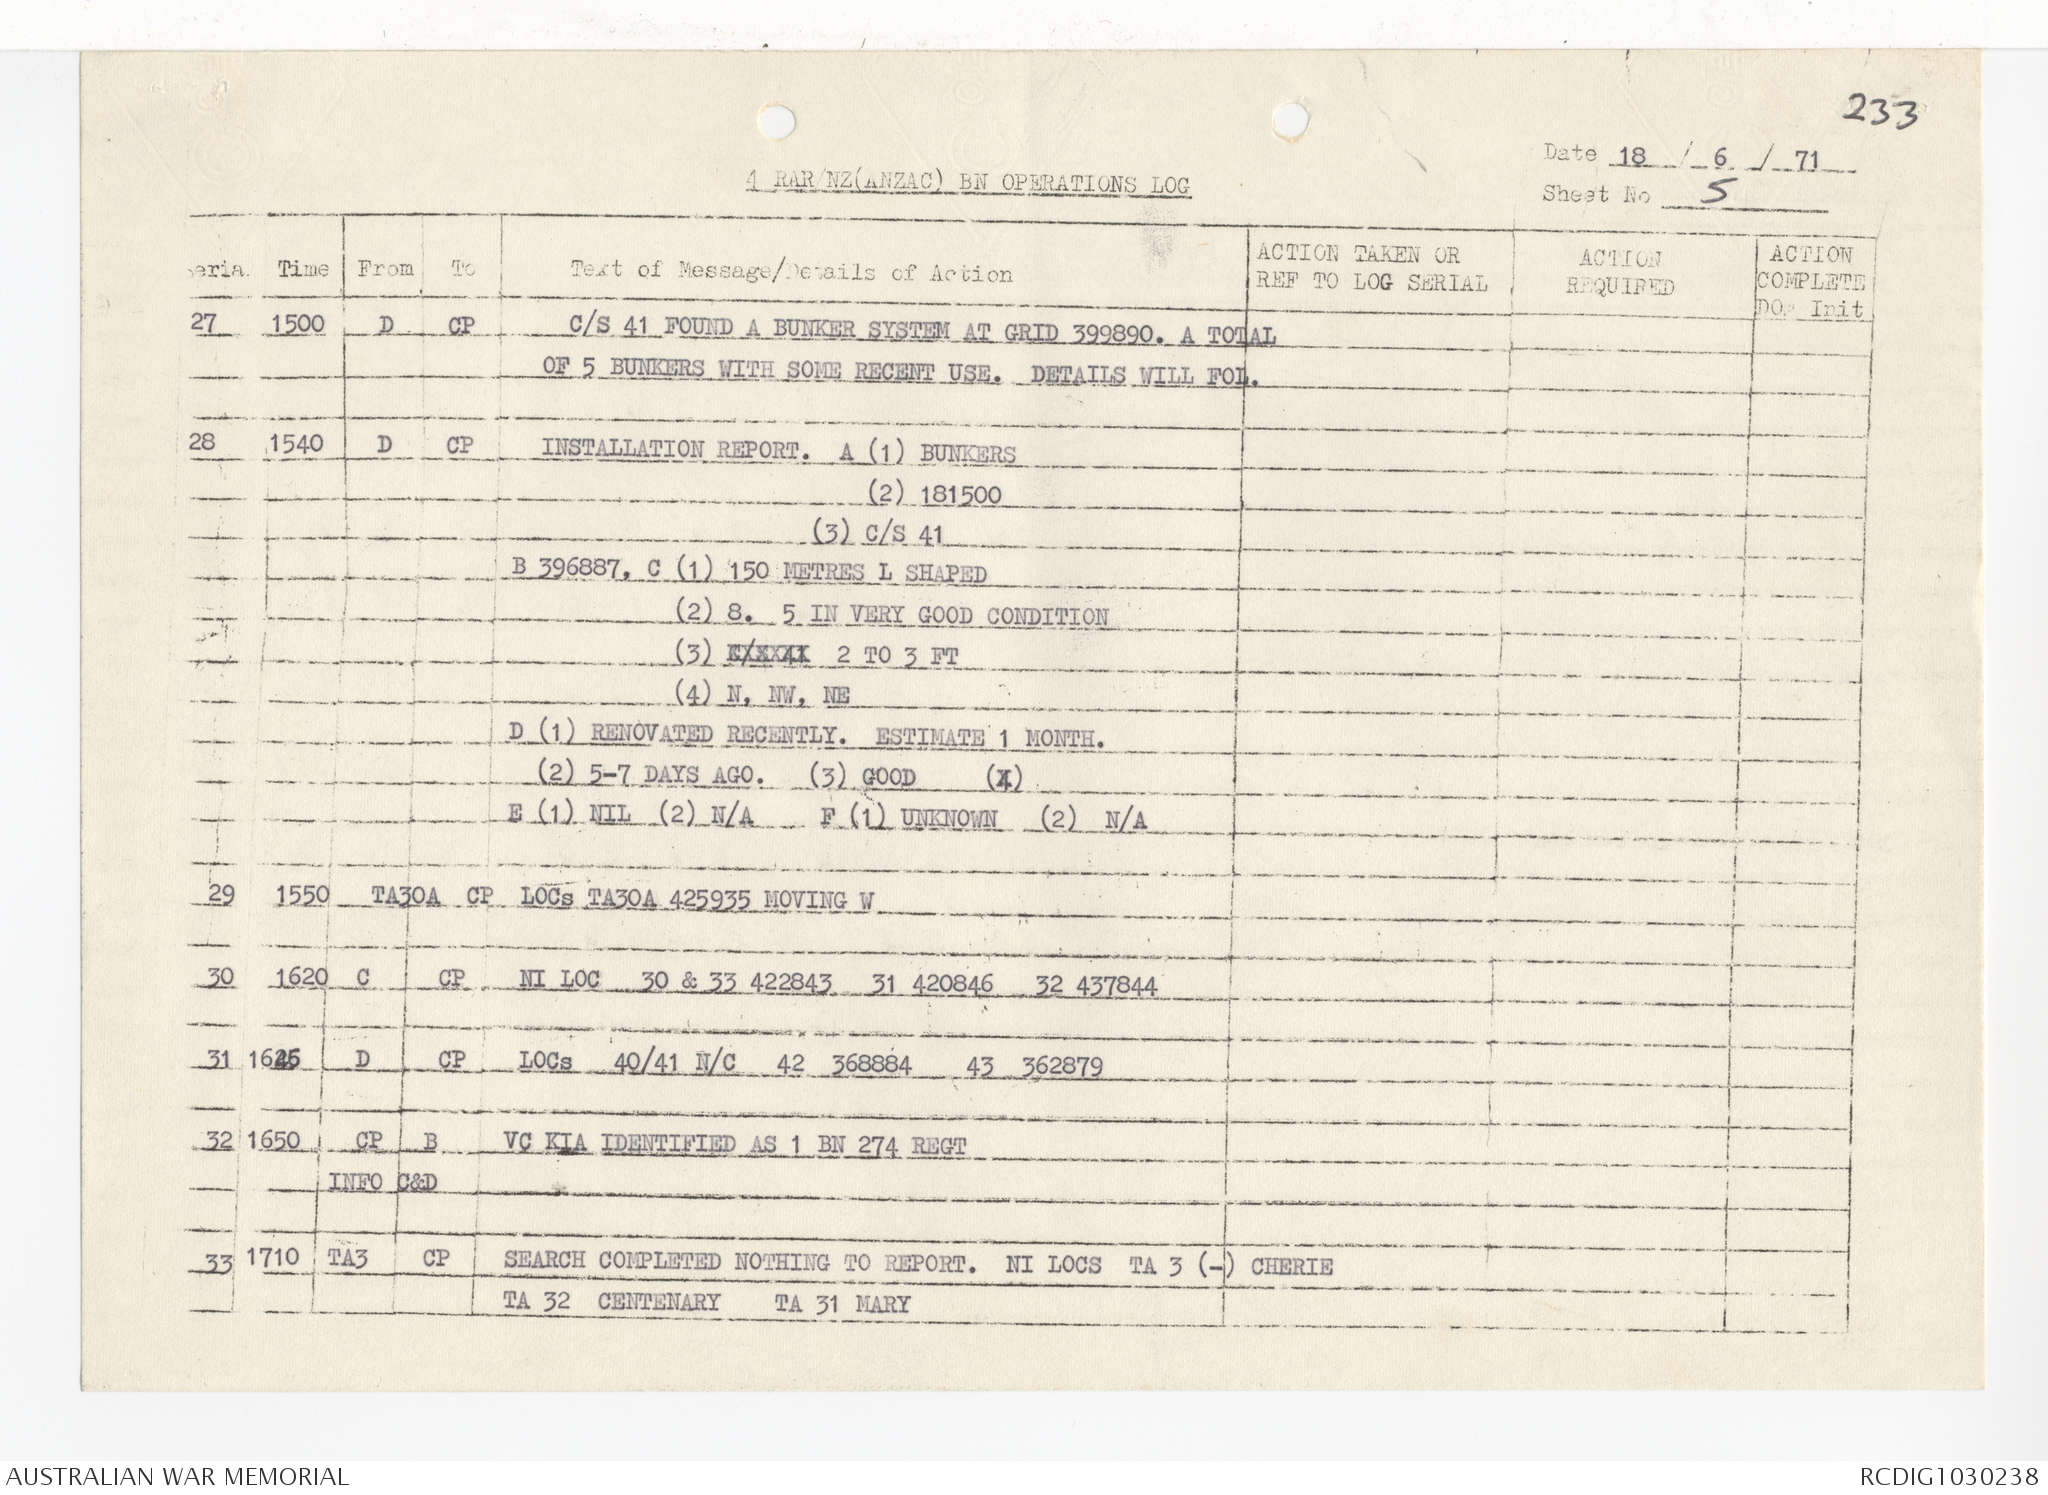 233
Date 18 / 6 / 71
4 RAR/NZ(ANZAC) BN OPERATIONS LOG
Sheet No 5
Serial Time From To Text of Message/Details of Action ACTION TAKEN OR REF TO LOG SERIAL ACTION REQUIRED ACTION COMPLETE DOe Init
27 1500 D CP C/S 41 FOUND A BUNKER SYSTEM AT GRID 399890. A TOTAL
OF 5 BUNKERS WITH SOME RECENT USE. DETAILS WILL FOL.
28 1540 D CP INSTALLATION REPORT. A (1) BUNKERS
(2) 181500
(3) C/S 41
B 396887, C (1) 150 METRES L SHAPED
(2) 8. 5 IN VERY GOOD CONDITION
(3) 2 TO 3 FT
(4) N, NW, NE
D (1) RENOVATED RECENTLY. ESTIMATE 1 MONTH.
(2) 5-7 DAYS AGO. (3) GOOD (4)
E (1) NIL (2) N/A F (1) UNKNOWN (2) N/A
29 1550 TA30A CP LOCs TA30A 425935 MOVING W
30 1620 C CP NI LOC 30 & 33 422843 31 420846 32 437844
31 D CP LOCs 40/41 N/C 42 368884 43 362879
32 1650 CP B VC KIA IDENTIFIED AS 1 BN 274 REGT
INFO C&D
33 1710 TA3 CP SEARCH COMPLETED NOTHING TO REPORT. NI LOCS TA 3 (-) CHERIE
TA 32 CENTENARY TA 31 MARY
AUSTRALIAN WAR MEMORIAL
RCDIG1030238